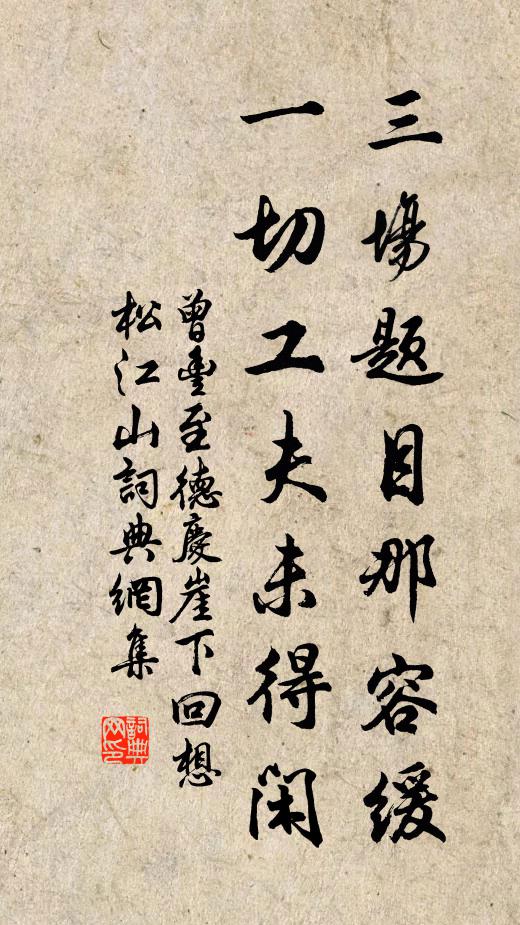 三場題目那容緩
一切工夫未得閑
曾豐至德慶崖下回想
松江山詞典網集
詞典网印